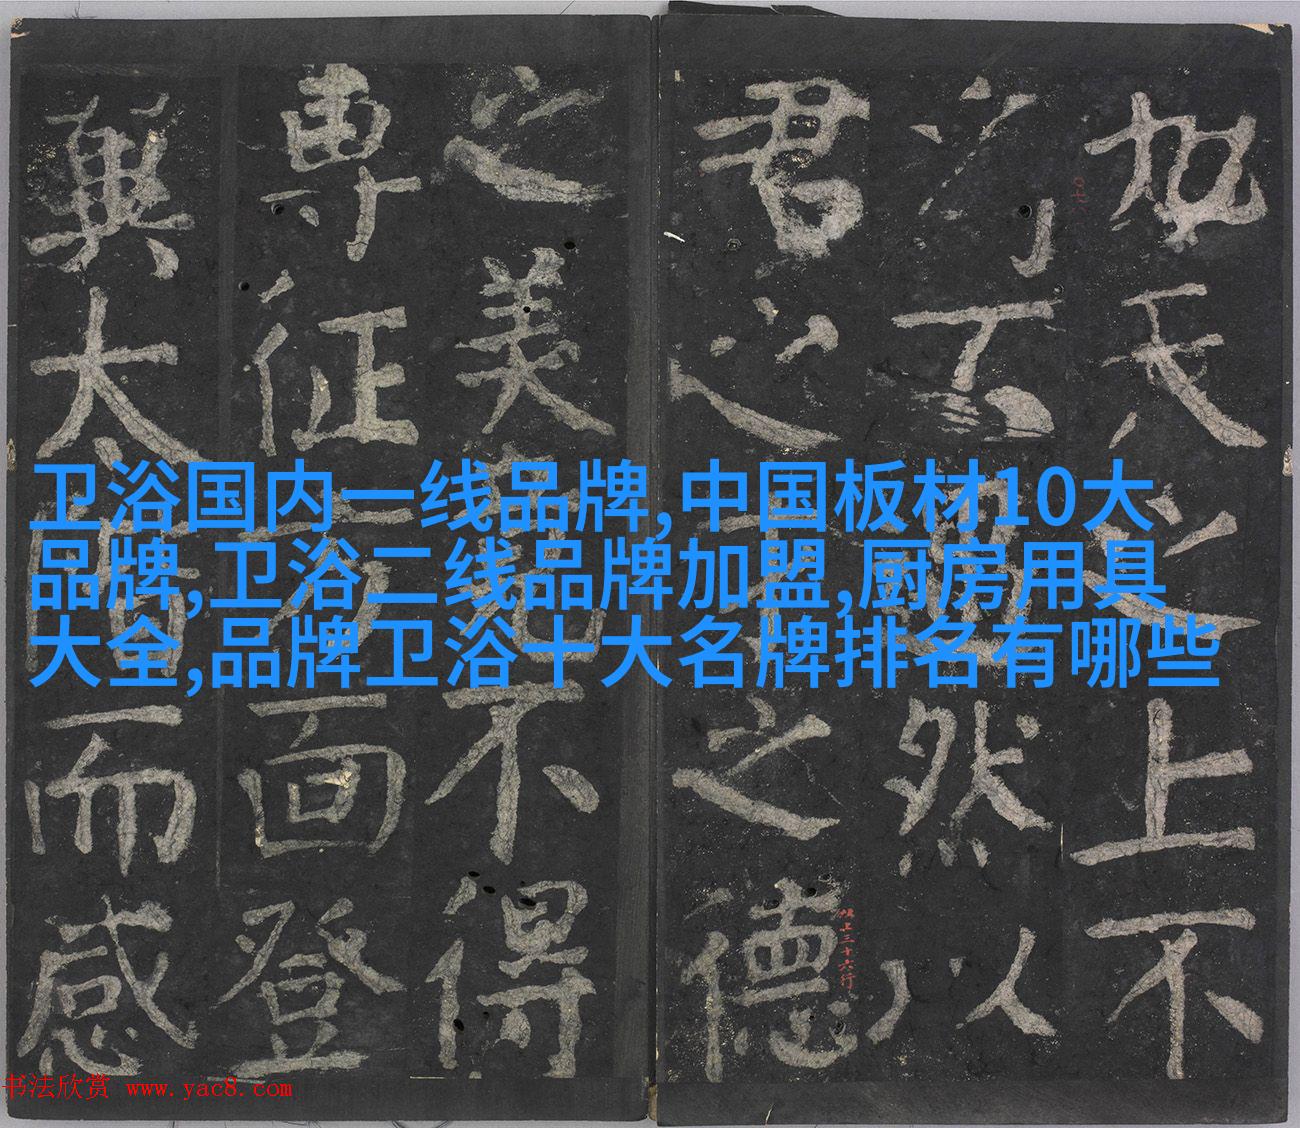 卫浴国内一线品牌,中国板材10大
品牌,卫浴二线品牌加盟,厨房用具
大全,品牌卫浴十大名牌排名有哪些
氏之上不
下然以
君之之德
之美不得
專征方面登
翼太階而感
上三十六行
书法欣赏 www.yac8.com